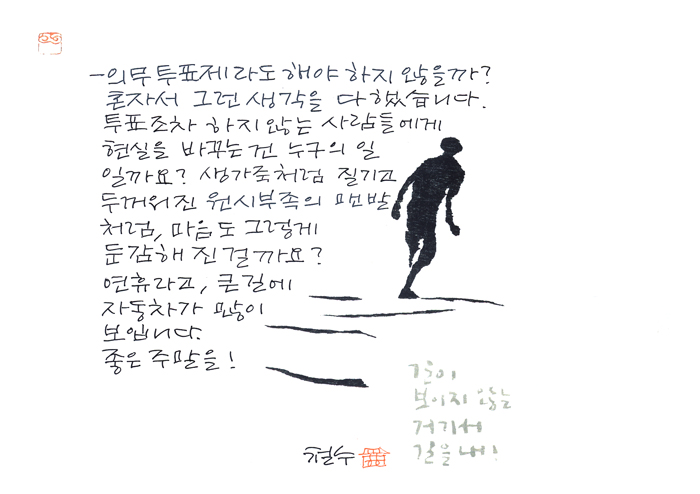 -의무투표제라도 해야 하지 않을까?
혼자서 그런 생각을 다 했습니다.
투표조차 하지 않는 사람들에게
현실을 바꾸는 건 누구의 일
일까요? 생가죽처럼 질기고
두꺼워진 원시부족의 맨발
처럼, 마음도 그렇게
둔감해 진걸까요?
연휴라고, 큰길에
자동차가 많이
보입니다.
좋은 주말을!
길이
보이지 않는
거기서
길을 내!
철수